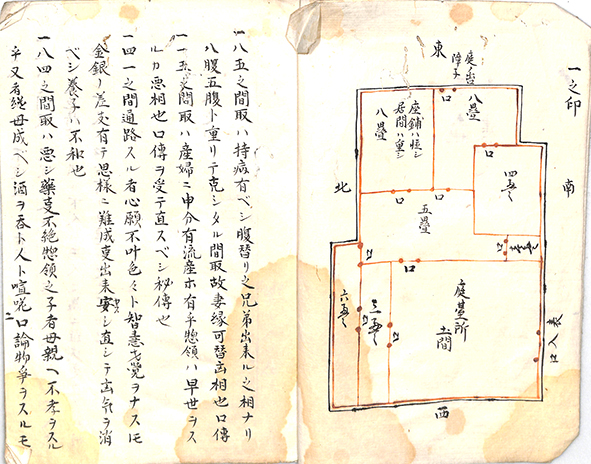 一之印
南
東
庭ノ出
障子
八疊
八疊
座鋪ハ軽シ
居間ハ重シ
口
口
四疊
北
口
口
五疊
口
口
口
庭臺所
土間
三疊
口
六疊
口
表入口
西
一八五之間取ハ持病有ベシ腹替リ之兄弟出来ル之相ナリ
八腹五腹ト重リテ克シタル間取故妻縁可替凶相也口傳
一一五之間取ハ産婦ニ申分有流産ホ有乎惣領ハ早世ヲス
ルカ悪相也口傳ヲ受テ直スベシ秘傳也
一四一之間通路スル者心願不叶色々ト智恵才覚ヲナスモ
金銀ノ差支有テ思様ニ難成変出来安シ直シテ凶気ヲ消
ベシ養子ハ不和也
一八四之間取ハ悪シ藥支不絶惣領之子者母親ヘ不孝ヲスル
乎又者継母成ベシ酒ヲ呑ト人ト喧嘩口論物争ヲスルモ